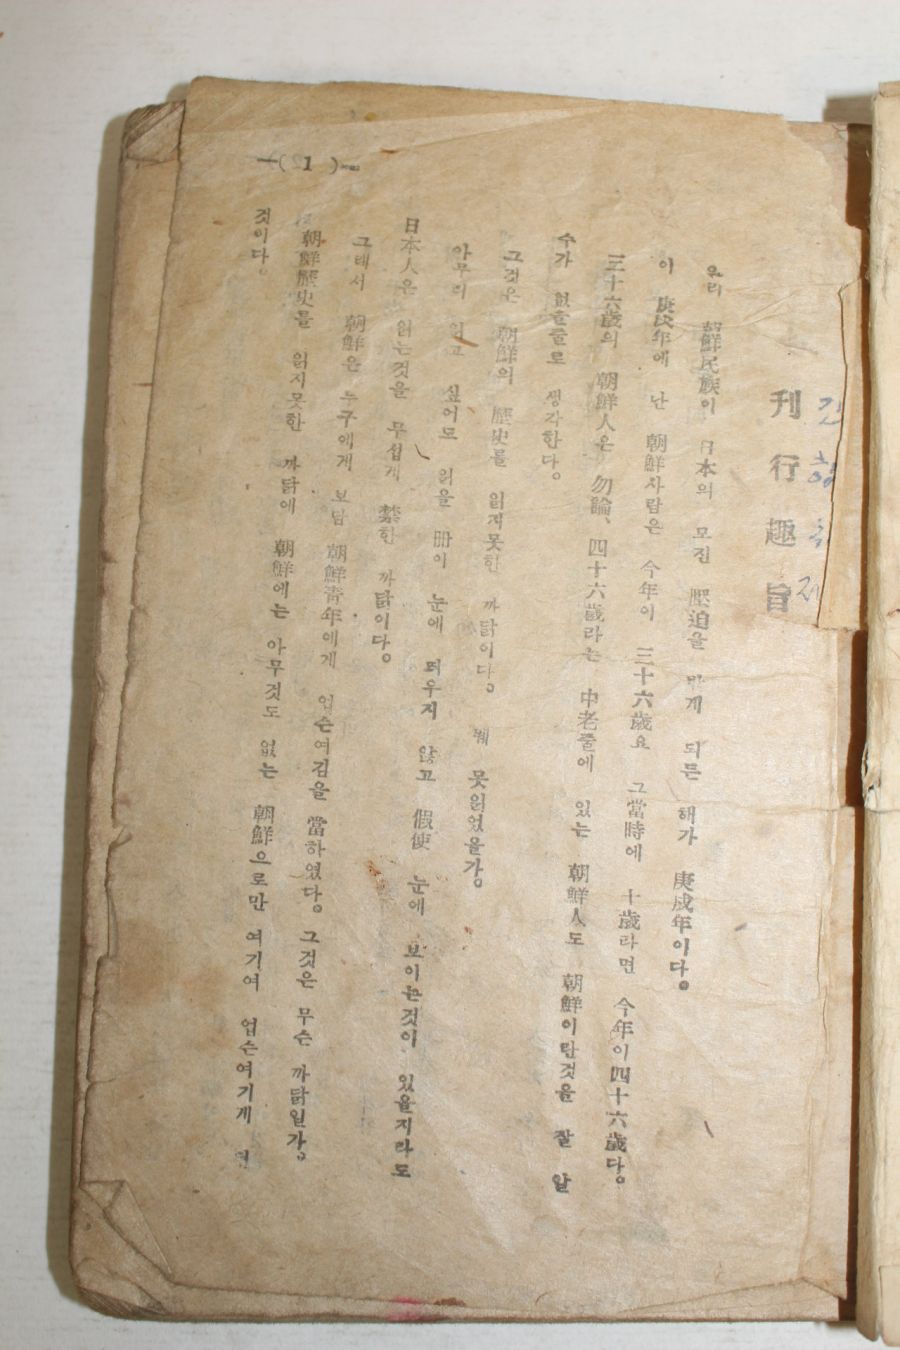 刊行趣旨
우리 朝鮮民族이 日本의 모진 壓迫을 받게 되든 해가 庚戌年이다。
이 庚戌年에 난 朝鮮사람은 今年이 三十六歲요 그當時에 十歲라면 今年이四十六歲다。
三十六歲의 朝鮮人은 勿論、四十六歲라는 中老줄에 있는 朝鮮人도 朝鮮이란것을 잘 알
수가 없을줄로 생각한다。
그것은 朝鮮의 歷史를 읽지못한 까닭이다。 웨 못읽었을가。
아무리 읽고 싶어도 읽을 冊이 눈에 띄우지 않고 假使 눈에 보이는것이 있을지라도
日本人은 읽는것을 무섭게 禁한 까닭이다。
그래서 朝鮮은 누구에게 보담 朝鮮靑年에게 업슨여김을 當하였다。 그것은 무슨 까닭일가。
朝鮮歷史를 읽지못한 까닭에 朝鮮에는 아무것도 없는 朝鮮으로만 여기여 업슨여기게 된
것이다。
—( 1 )—